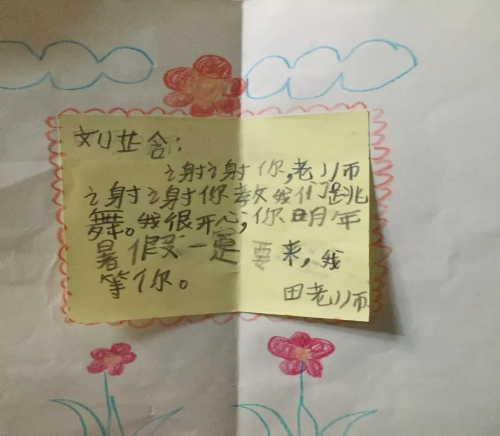 刘芷含：
谢谢你,老师
谢谢你教我们跳
舞。我很开心,你明年
暑假一定要来,我
等你。
田老师